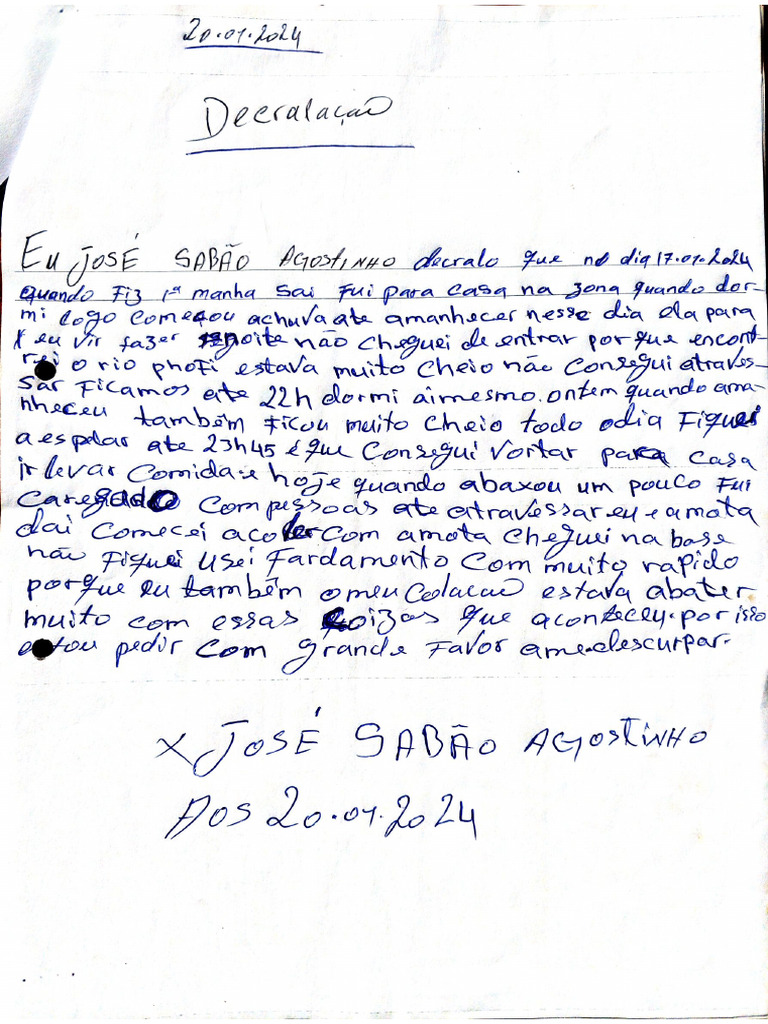 20.01.2024
Decralação
Eu JOSÉ SABÃO AGOSTINHO decralo que no dia 17.01.2024
quando Fiz 1ª manha Sai Fui para casa na zona quando dor-
mi logo começou achuva ate amanhecer nesse dia ela para
eu vir fazer noite não cheguei de entrar por que encont-
rei o rio phofi estava muito cheio não Consegui atraves-
sar Ficamos ate 22h dormi aimesmo. ontem quando ama-
nheceu também Ficou muito cheio todo odia Fiquei
a espelar ate 23h45 é que Consegui Vortar para casa
ir levar Comida e hoje quando abaxou um pouco Fui
Caregado Com pessoas ate atravessar eu e a mota
dai comecei acoler com amota Cheguei na base
não Fiquei Usei Fardamento Com muito rapido
porque eu também o meu Colacao estava abater
muito com essas Coizas que aconteceu. por isso
estou pedir Com grande Favor ame descurpar.
x JOSÉ SABÃO AGOSTINHO
AOS 20.01.2024